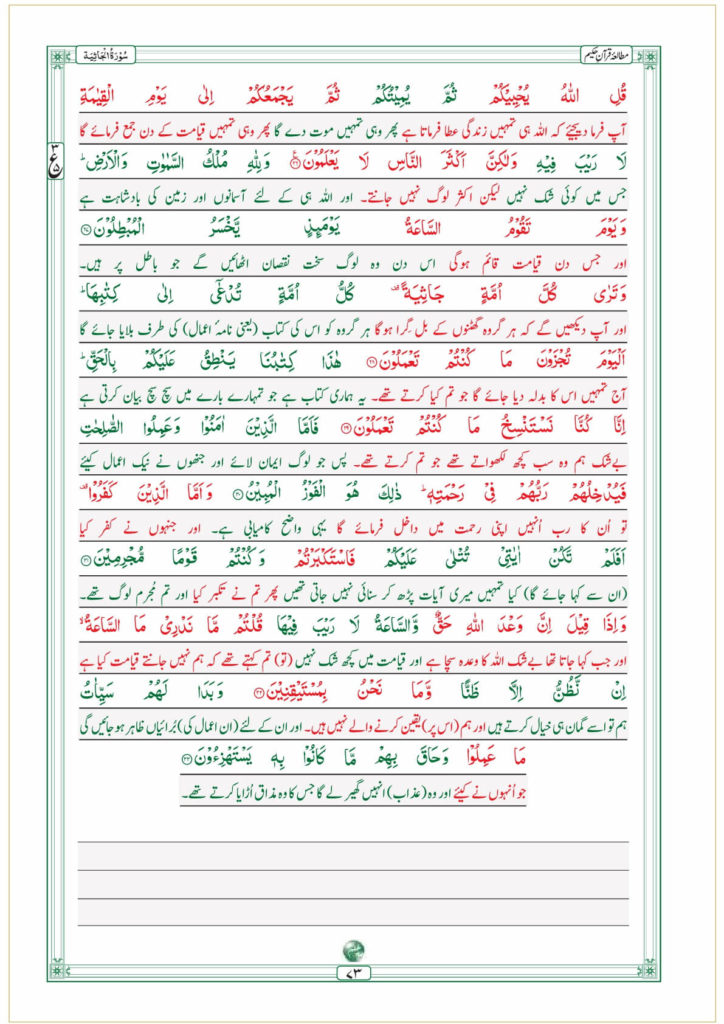 مطالعۂ قرآنِ حکیم
سُوْرَةُ الْجَاثِيَة
قُلِ اللّٰهُ يُحْيِيْكُمْ ثُمَّ يُمِيْتُكُمْ ثُمَّ يَجْمَعُكُمْ اِلٰى يَوْمِ الْقِيٰمَةِ
آپ فرما دیجیئے کہ اللہ ہی تمہیں زندگی عطا فرماتا ہے پھر وہی تمہیں موت دے گا پھر وہی تمہیں قیامت کے دن جمع فرمائے گا
لَا رَيْبَ فِيْهِ وَلٰكِنَّ اَكْثَرَ النَّاسِ لَا يَعْلَمُوْنَ ۝۲۶ وَلِلّٰهِ مُلْكُ السَّمٰوٰتِ وَالْاَرْضِ ؕ
جس میں کوئی شک نہیں لیکن اکثر لوگ نہیں جانتے۔ اور اللہ ہی کے لئے آسمانوں اور زمین کی بادشاہت ہے
وَيَوْمَ تَقُوْمُ السَّاعَةُ يَوْمَىِٕذٍ يَّخْسَرُ الْمُبْطِلُوْنَ ۝۲۷
اور جس دن قیامت قائم ہوگی اس دن وہ لوگ سخت نقصان اٹھائیں گے جو باطل پر ہیں۔
وَتَرٰى كُلَّ اُمَّةٍ جَاثِيَةً ۫ كُلُّ اُمَّةٍ تُدْعٰۤى اِلٰى كِتٰبِهَا ؕ
اور آپ دیکھیں گے کہ ہر گروہ گھٹنوں کے بل گِرا ہوگا ہر گروہ کو اس کی کتاب (یعنی نامۂ اعمال) کی طرف بلایا جائے گا
اَلْيَوْمَ تُجْزَوْنَ مَا كُنْتُمْ تَعْمَلُوْنَ ۝۲۸ هٰذَا كِتٰبُنَا يَنْطِقُ عَلَيْكُمْ بِالْحَقِّ ؕ
آج تمہیں اس کا بدلہ دیا جائے گا جو تم کیا کرتے تھے۔ یہ ہماری کتاب ہے جو تمہارے بارے میں سچ سچ بیان کرتی ہے
اِنَّا كُنَّا نَسْتَنْسِخُ مَا كُنْتُمْ تَعْمَلُوْنَ ۝۲۹ فَاَمَّا الَّذِيْنَ اٰمَنُوْا وَعَمِلُوا الصّٰلِحٰتِ
بےشک ہم وہ سب کچھ لکھواتے تھے جو تم کرتے تھے۔ پس جو لوگ ایمان لائے اور جنھوں نے نیک اعمال کیئے
فَيُدْخِلُهُمْ رَبُّهُمْ فِيْ رَحْمَتِهٖ ؕ ذٰلِكَ هُوَ الْفَوْزُ الْمُبِيْنُ ۝۳۰ وَاَمَّا الَّذِيْنَ كَفَرُوْا ۫
تو اُن کا رب اُنہیں اپنی رحمت میں داخل فرمائے گا یہی واضح کامیابی ہے۔ اور جنہوں نے کفر کیا
اَفَلَمْ تَكُنْ اٰيٰتِيْ تُتْلٰى عَلَيْكُمْ فَاسْتَكْبَرْتُمْ وَكُنْتُمْ قَوْمًا مُّجْرِمِيْنَ ۝۳۱
(ان سے کہا جائے گا) کیا تمہیں میری آیات پڑھ کر سنائی نہیں جاتی تھیں پھر تم نے تکبر کیا اور تم مُجرم لوگ تھے۔
وَاِذَا قِيْلَ اِنَّ وَعْدَ اللّٰهِ حَقٌّ وَّالسَّاعَةُ لَا رَيْبَ فِيْهَا قُلْتُمْ مَّا نَدْرِيْ مَا السَّاعَةُ ۙ
اور جب کہا جاتا تھا بےشک اللہ کا وعدہ سچا ہے اور قیامت میں کچھ شک نہیں (تو) تم کہتے تھے کہ ہم نہیں جانتے قیامت کیا ہے
اِنْ نَّظُنُّ اِلَّا ظَنًّا وَّمَا نَحْنُ بِمُسْتَيْقِنِيْنَ ۝۳۲ وَبَدَا لَهُمْ سَيِّاٰتُ
ہم تو اسے گمان ہی خیال کرتے ہیں اور ہم (اس پر) یقین کرنے والے نہیں ہیں۔ اور ان کے لئے (ان اعمال کی) بُرائیاں ظاہر ہو جائیں گی
مَا عَمِلُوْا وَحَاقَ بِهِمْ مَّا كَانُوْا بِهٖ يَسْتَهْزِءُوْنَ ۝۳۳
جو اُنہوں نے کیئے اور وہ (عذاب) انہیں گھیر لے گا جس کا وہ مذاق اُڑایا کرتے تھے۔
۷۳